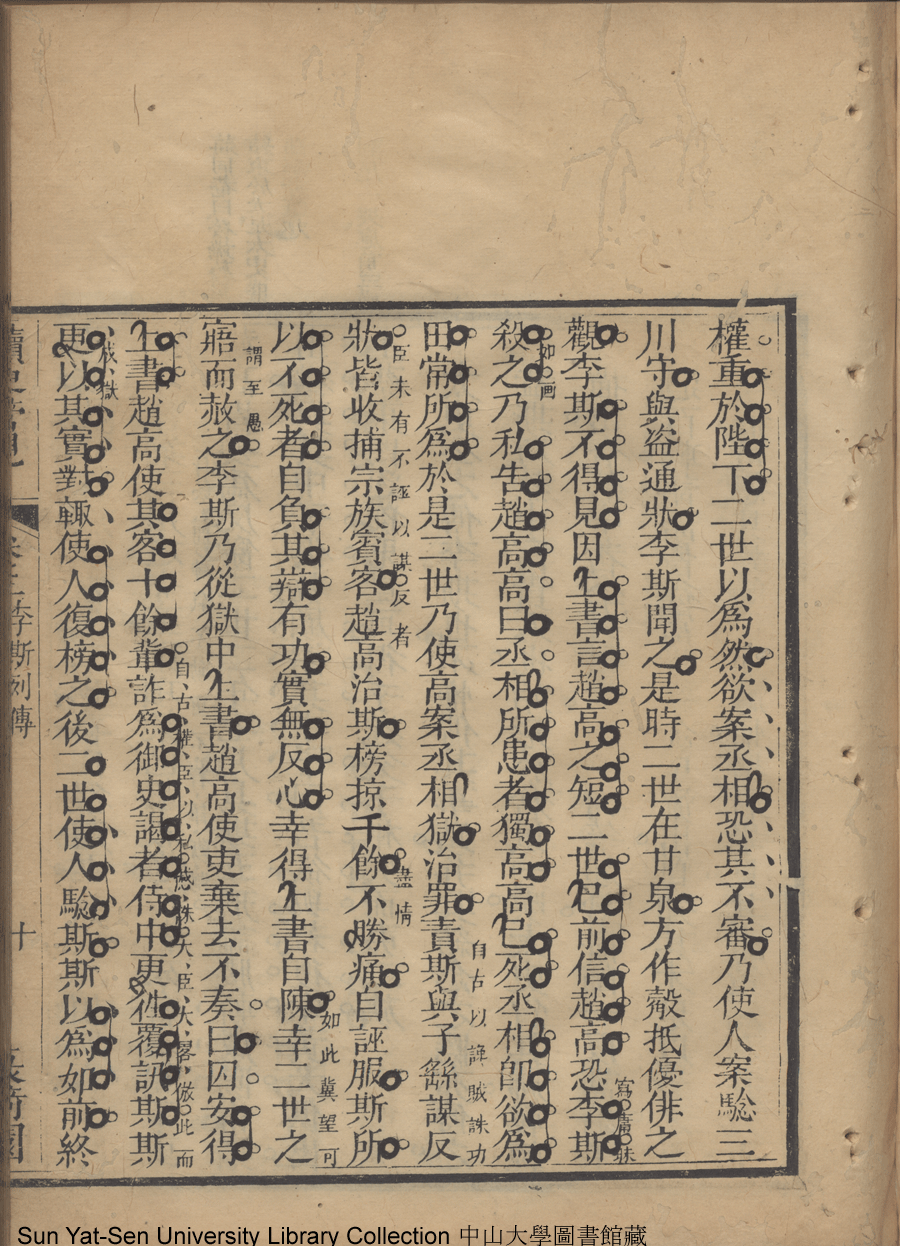 權重於陛下二世以爲然欲案丞相恐其不審乃使人案驗三
川守與盜通狀李斯聞之是時二世在甘泉方作觳抵優俳之
觀李斯不得見因上書言趙高之短二世已前信趙高恐李斯
寫庸
殺之乃私告趙高高曰丞相所患者獨高高已死丞相卽欲爲
如画
田常所爲於是二世乃使高案丞相獄治罪責斯與子繇謀反
自古以誣賊誅功
臣未有不誣以謀反者
狀皆收捕宗族賓客趙高治斯榜掠千餘不勝痛自誣服斯所
盡情
以不死者自負其辯有功實無反心幸得上書自陳幸二世之
如此冀望可
謂至愚
寤而赦之李斯乃從獄中上書趙高使吏棄去不奏曰囚安得
上書趙高使其客十餘輩詐爲御史謁者侍中更徃覆訊斯斯
自古權臣以私憾誅大臣大畧倣此而
成獄
更以其實對輒使人復榜之後二世使人驗斯斯以爲如前終
卷之 李斯列傳
十
Sun Yat-Sen University Library Collection 中山大學圖書館藏